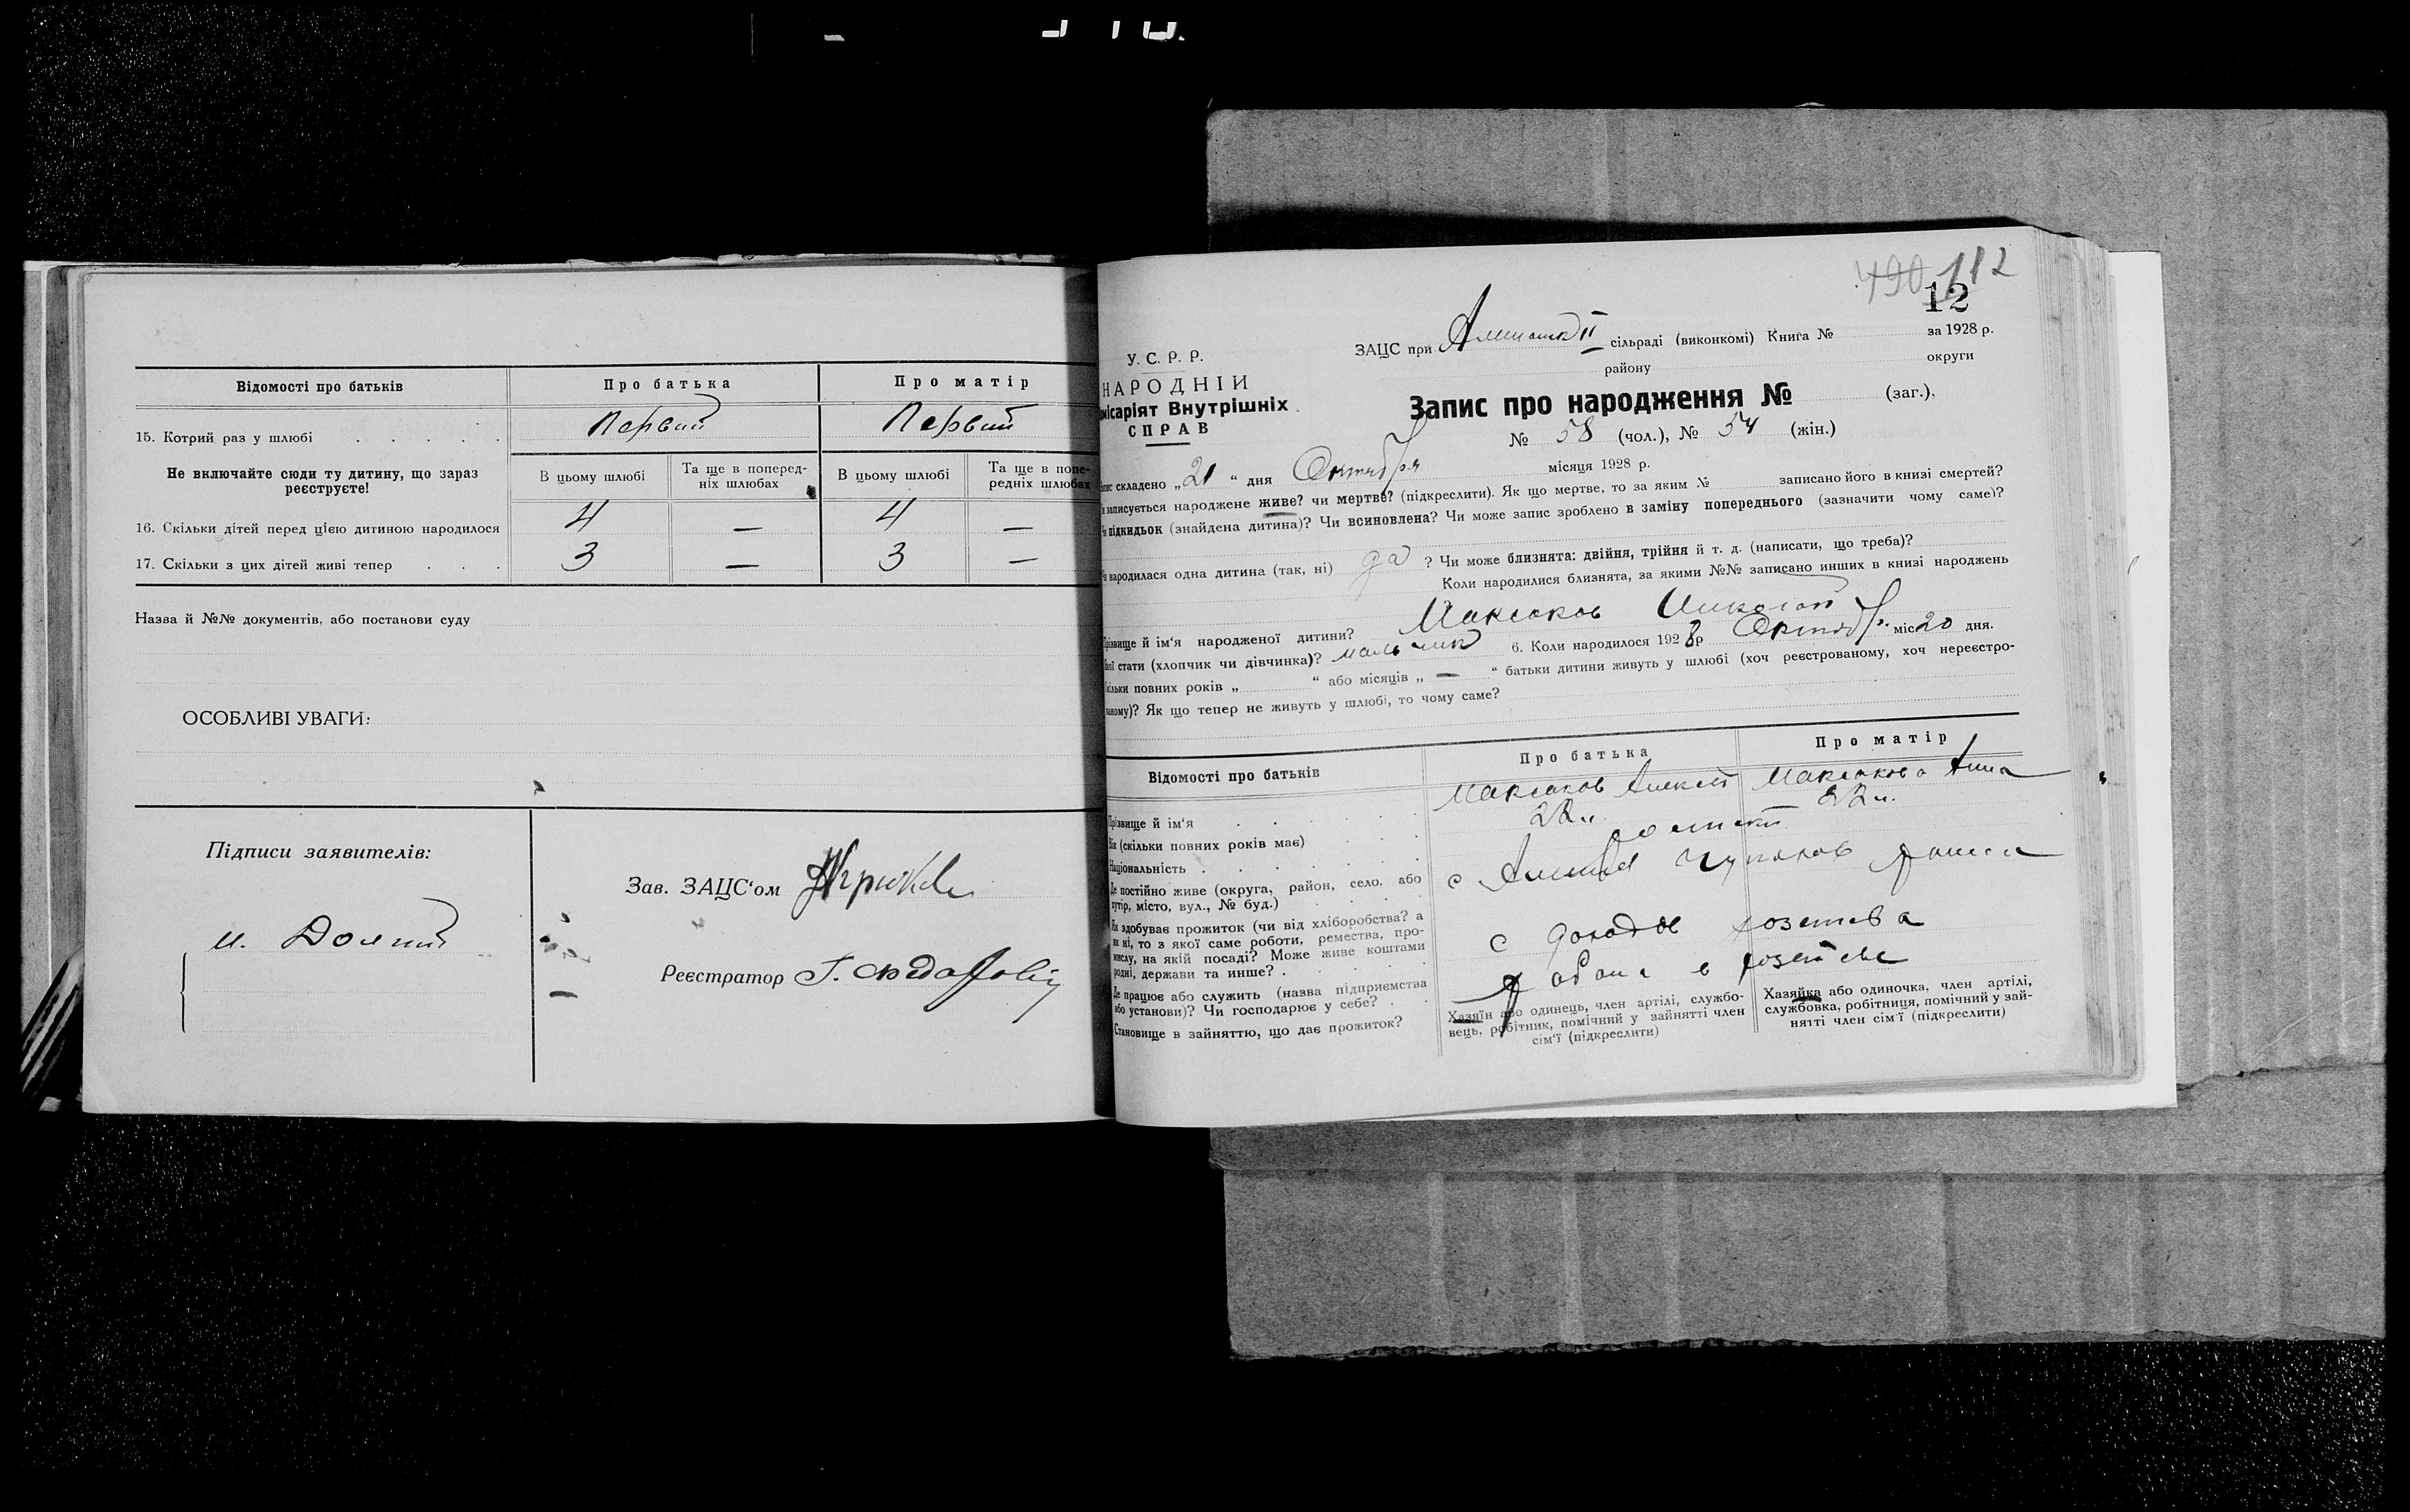 Відомості про батьків
Про батька
Про матір
15. Котрий раз у шлюбі . . . . .
Первий
Первий
Не включайте сюди ту дитину, що зараз
реєструєте!
В цьому шлюбі
Та ще в поперед-
ніх шлюбах
В цьому шлюбі
Та ще в попе-
редніх шлюбах
16. Скільки дітей перед цією дитиною народилося
4 — 4 —
17. Скільки з цих дітей живі тепер . . .
3 — 3 —
Назва й №№ документів, або постанови суду
ОСОБЛИВІ УВАГИ:
Підписи заявителів:
Зав. ЗАЦС‘ом
Реєстратор
490 112
12
У. С. Р. Р.
НАРОДНІЙ
місаріят Внутрішніх
СПРАВ
ЗАЦС при
сільраді (виконкомі) Книга № за 1928 р.
району округи
Запис про народження № (заг.),
№ 58 (чол.), № 54 (жін.)
складено „21“ дня Октября місяця 1928 р.
записується народжене живе? чи мертве? (підкреслити). Як що мертве, то за яким № записано його в книзі смертей?
підкидьок (знайдена дитина)? Чи всиновлена? Чи може запис зроблено в заміну попереднього (зазначити чому саме)?
народилася одна дитина (так, ні) да ? Чи може близнята: двійня, трійня й т. д. (написати, що треба)?
Коли народилися близнята, за якими №№ записано инших в книзі народжень
Прізвище й ім‘я народженої дитини? Максаков Николай
стати (хлопчик чи дівчинка)? мальчик 6. Коли народилося 1928 р Октябр. міс 20 дня.
повних років „ “ або місяців „ — “ батьки дитини живуть у шлюбі (хоч реєстрованому, хоч нереєстро-
ваному)? Як що тепер не живуть у шлюбі, то чому саме?
Відомості про батьків
Про батька
Про матір
Прізвище й ім‘я . . . . .
Максаков Алексей
Максакова Анна
Вік (скільки повних років має) . .
Національність . . . . . .
Де постійно живе (округа, район, село, або
хутір, місто, вул., № буд.) . . . .
Як здобуває прожиток (чи від хліборобства? а
як ні, то з якої саме роботи, ремества, про-
мислу, на якій посаді? Може живе коштами
родні, держави та инше? . . . . .
Де працює або служить (назва підприємства
або установи)? Чи господарює у себе? . .
Становище в зайняттю, що дає прожиток?
Хазяїн або одинець, член артілі, службо-
вець, робітник, помічний у зайнятті член
сім‘ї (підкреслити)
Хазяйка або одиночка, член артілі,
службовка, робітниця, помічний у зай-
нятті член сім‘ї (підкреслити)